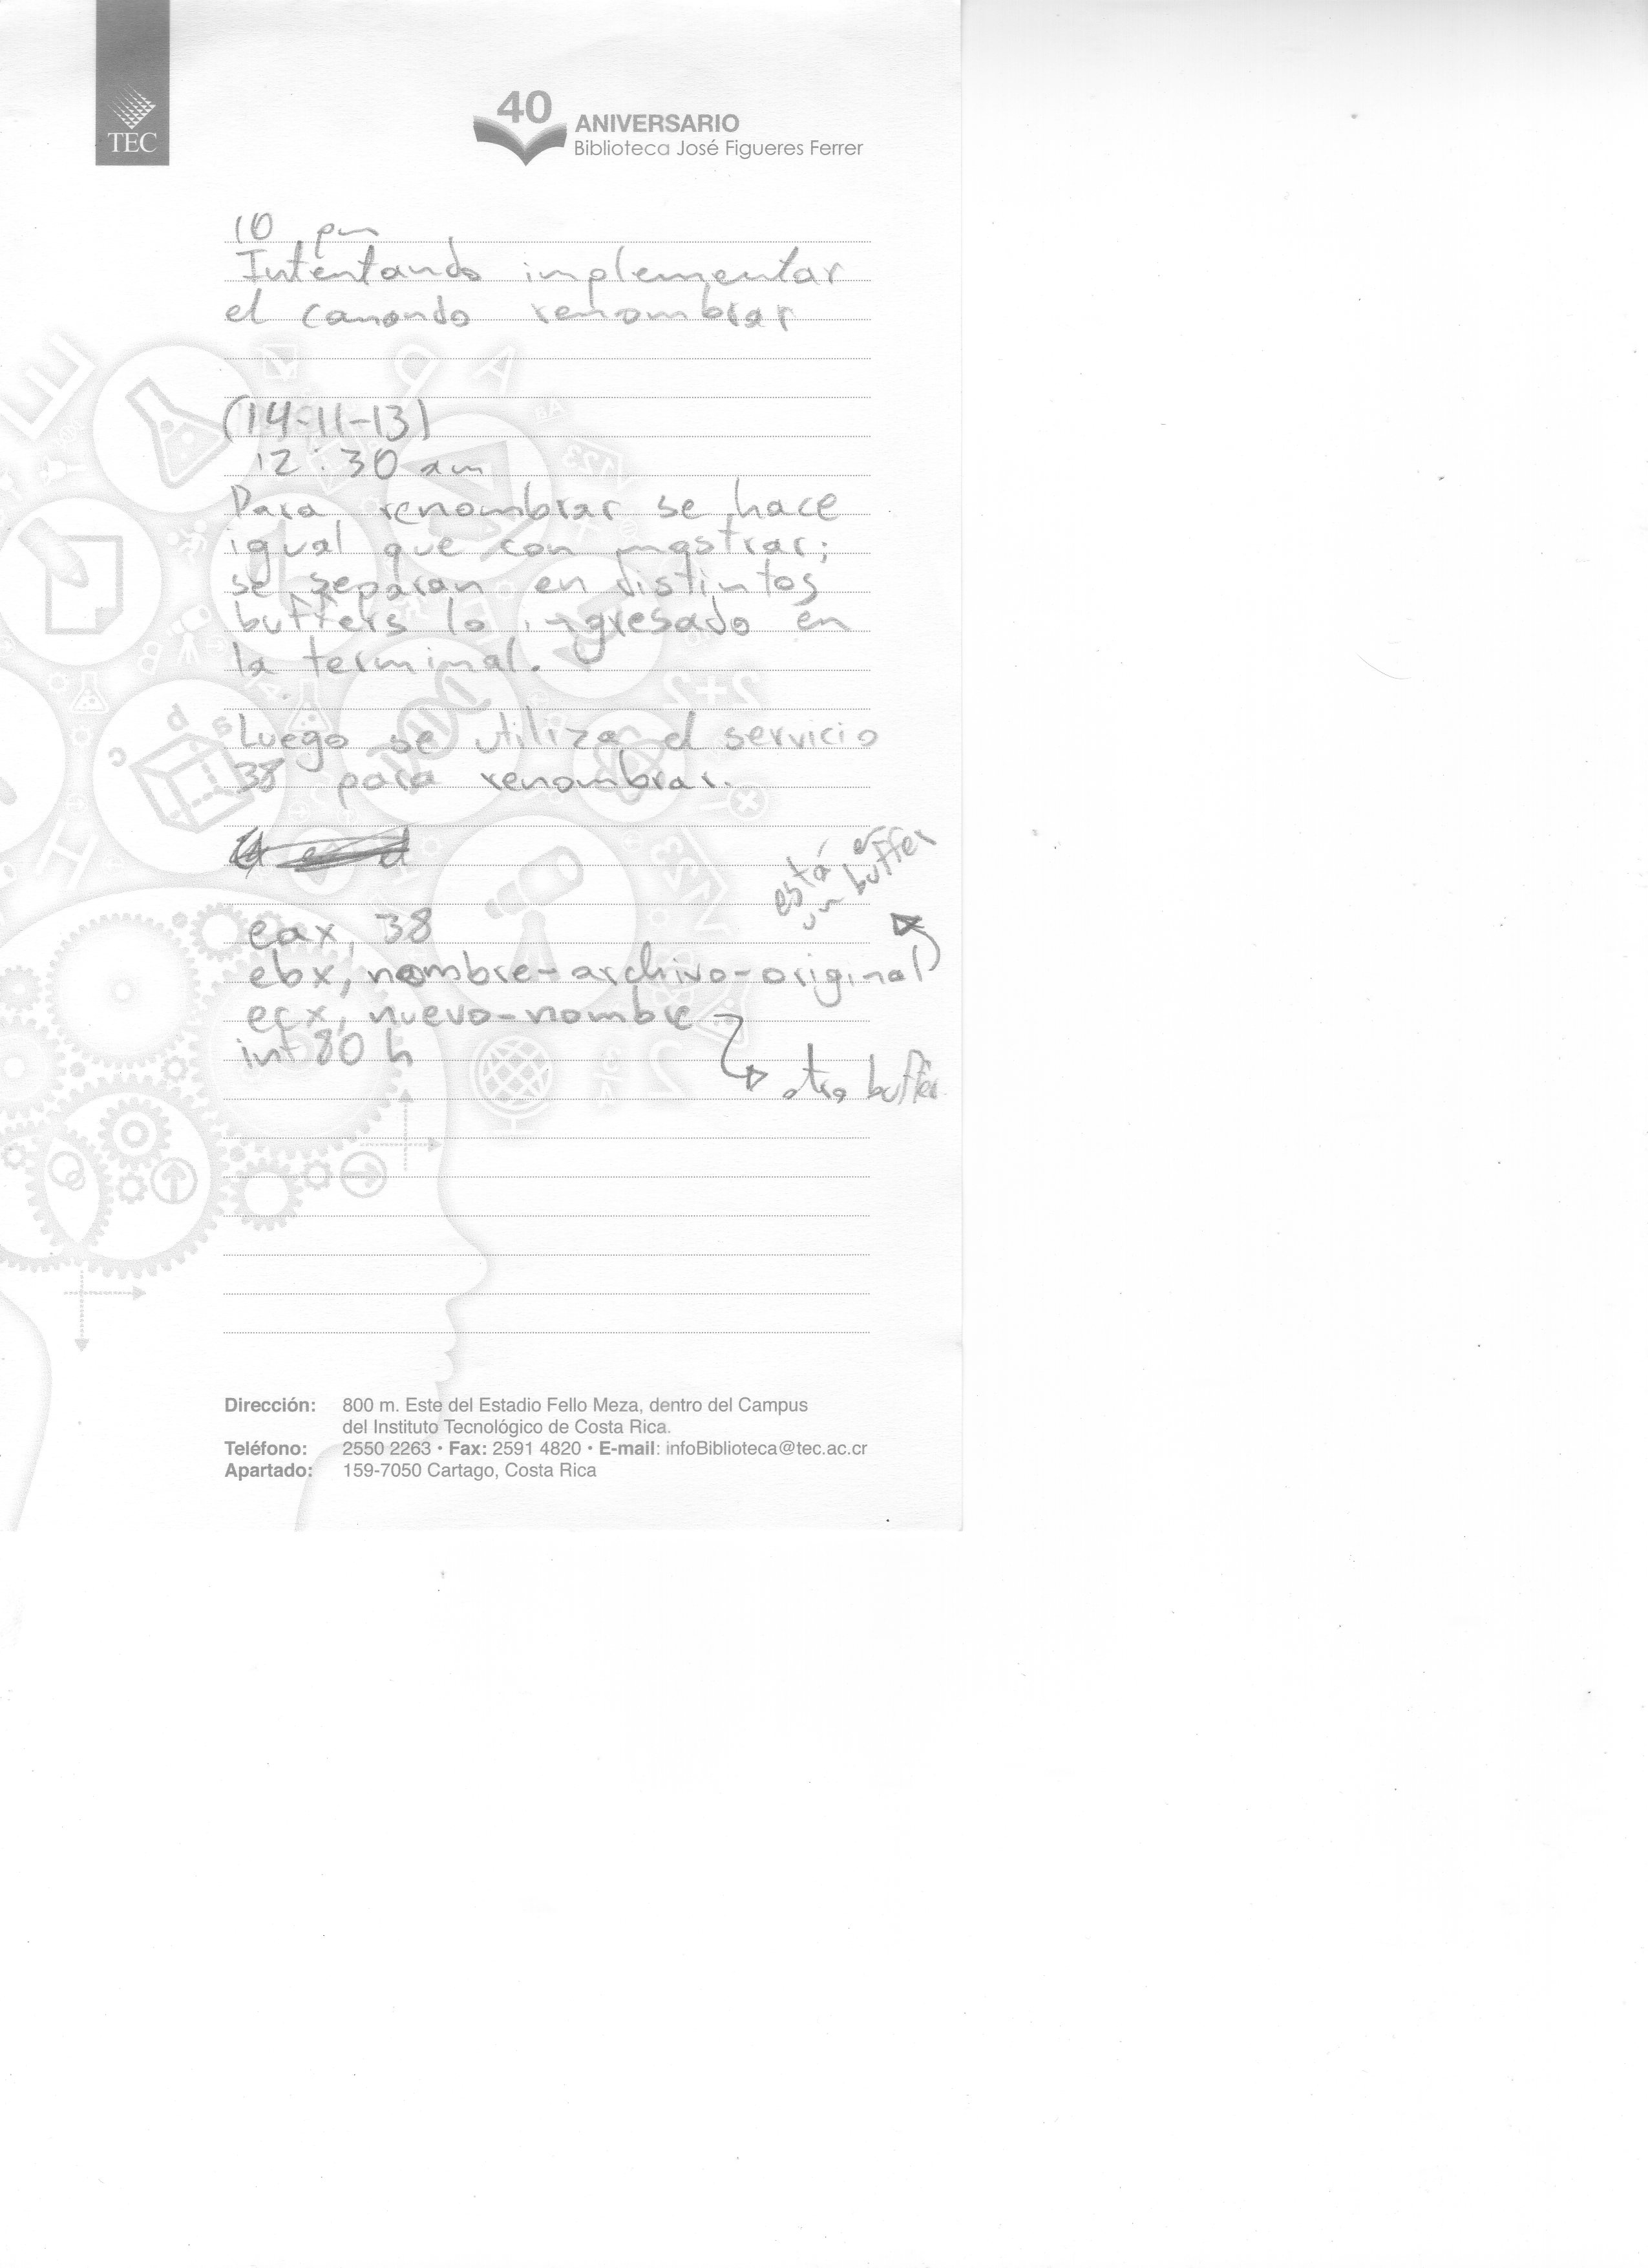 TEC
40
ANIVERSARIO
Biblioteca José Figueres Ferrer
10 pm
Intentando implementar
el comando renombrar
(14-11-13)
12:30 am
Para renombrar se hace
igual que con mostrar;
se separan en distintos
buffers lo ingresado en
la terminal.
Luego se utiliza el servicio
38 para renombrar.
está en
un buffer
eax, 38
ebx, nombre-archivo-original
ecx, nuevo-nombre
int 80 h
otro buffer
Dirección: 800 m. Este del Estadio Fello Meza, dentro del Campus
del Instituto Tecnológico de Costa Rica.
Teléfono: 2550 2263 • Fax: 2591 4820 • E-mail: infoBiblioteca@tec.ac.cr
Apartado: 159-7050 Cartago, Costa Rica